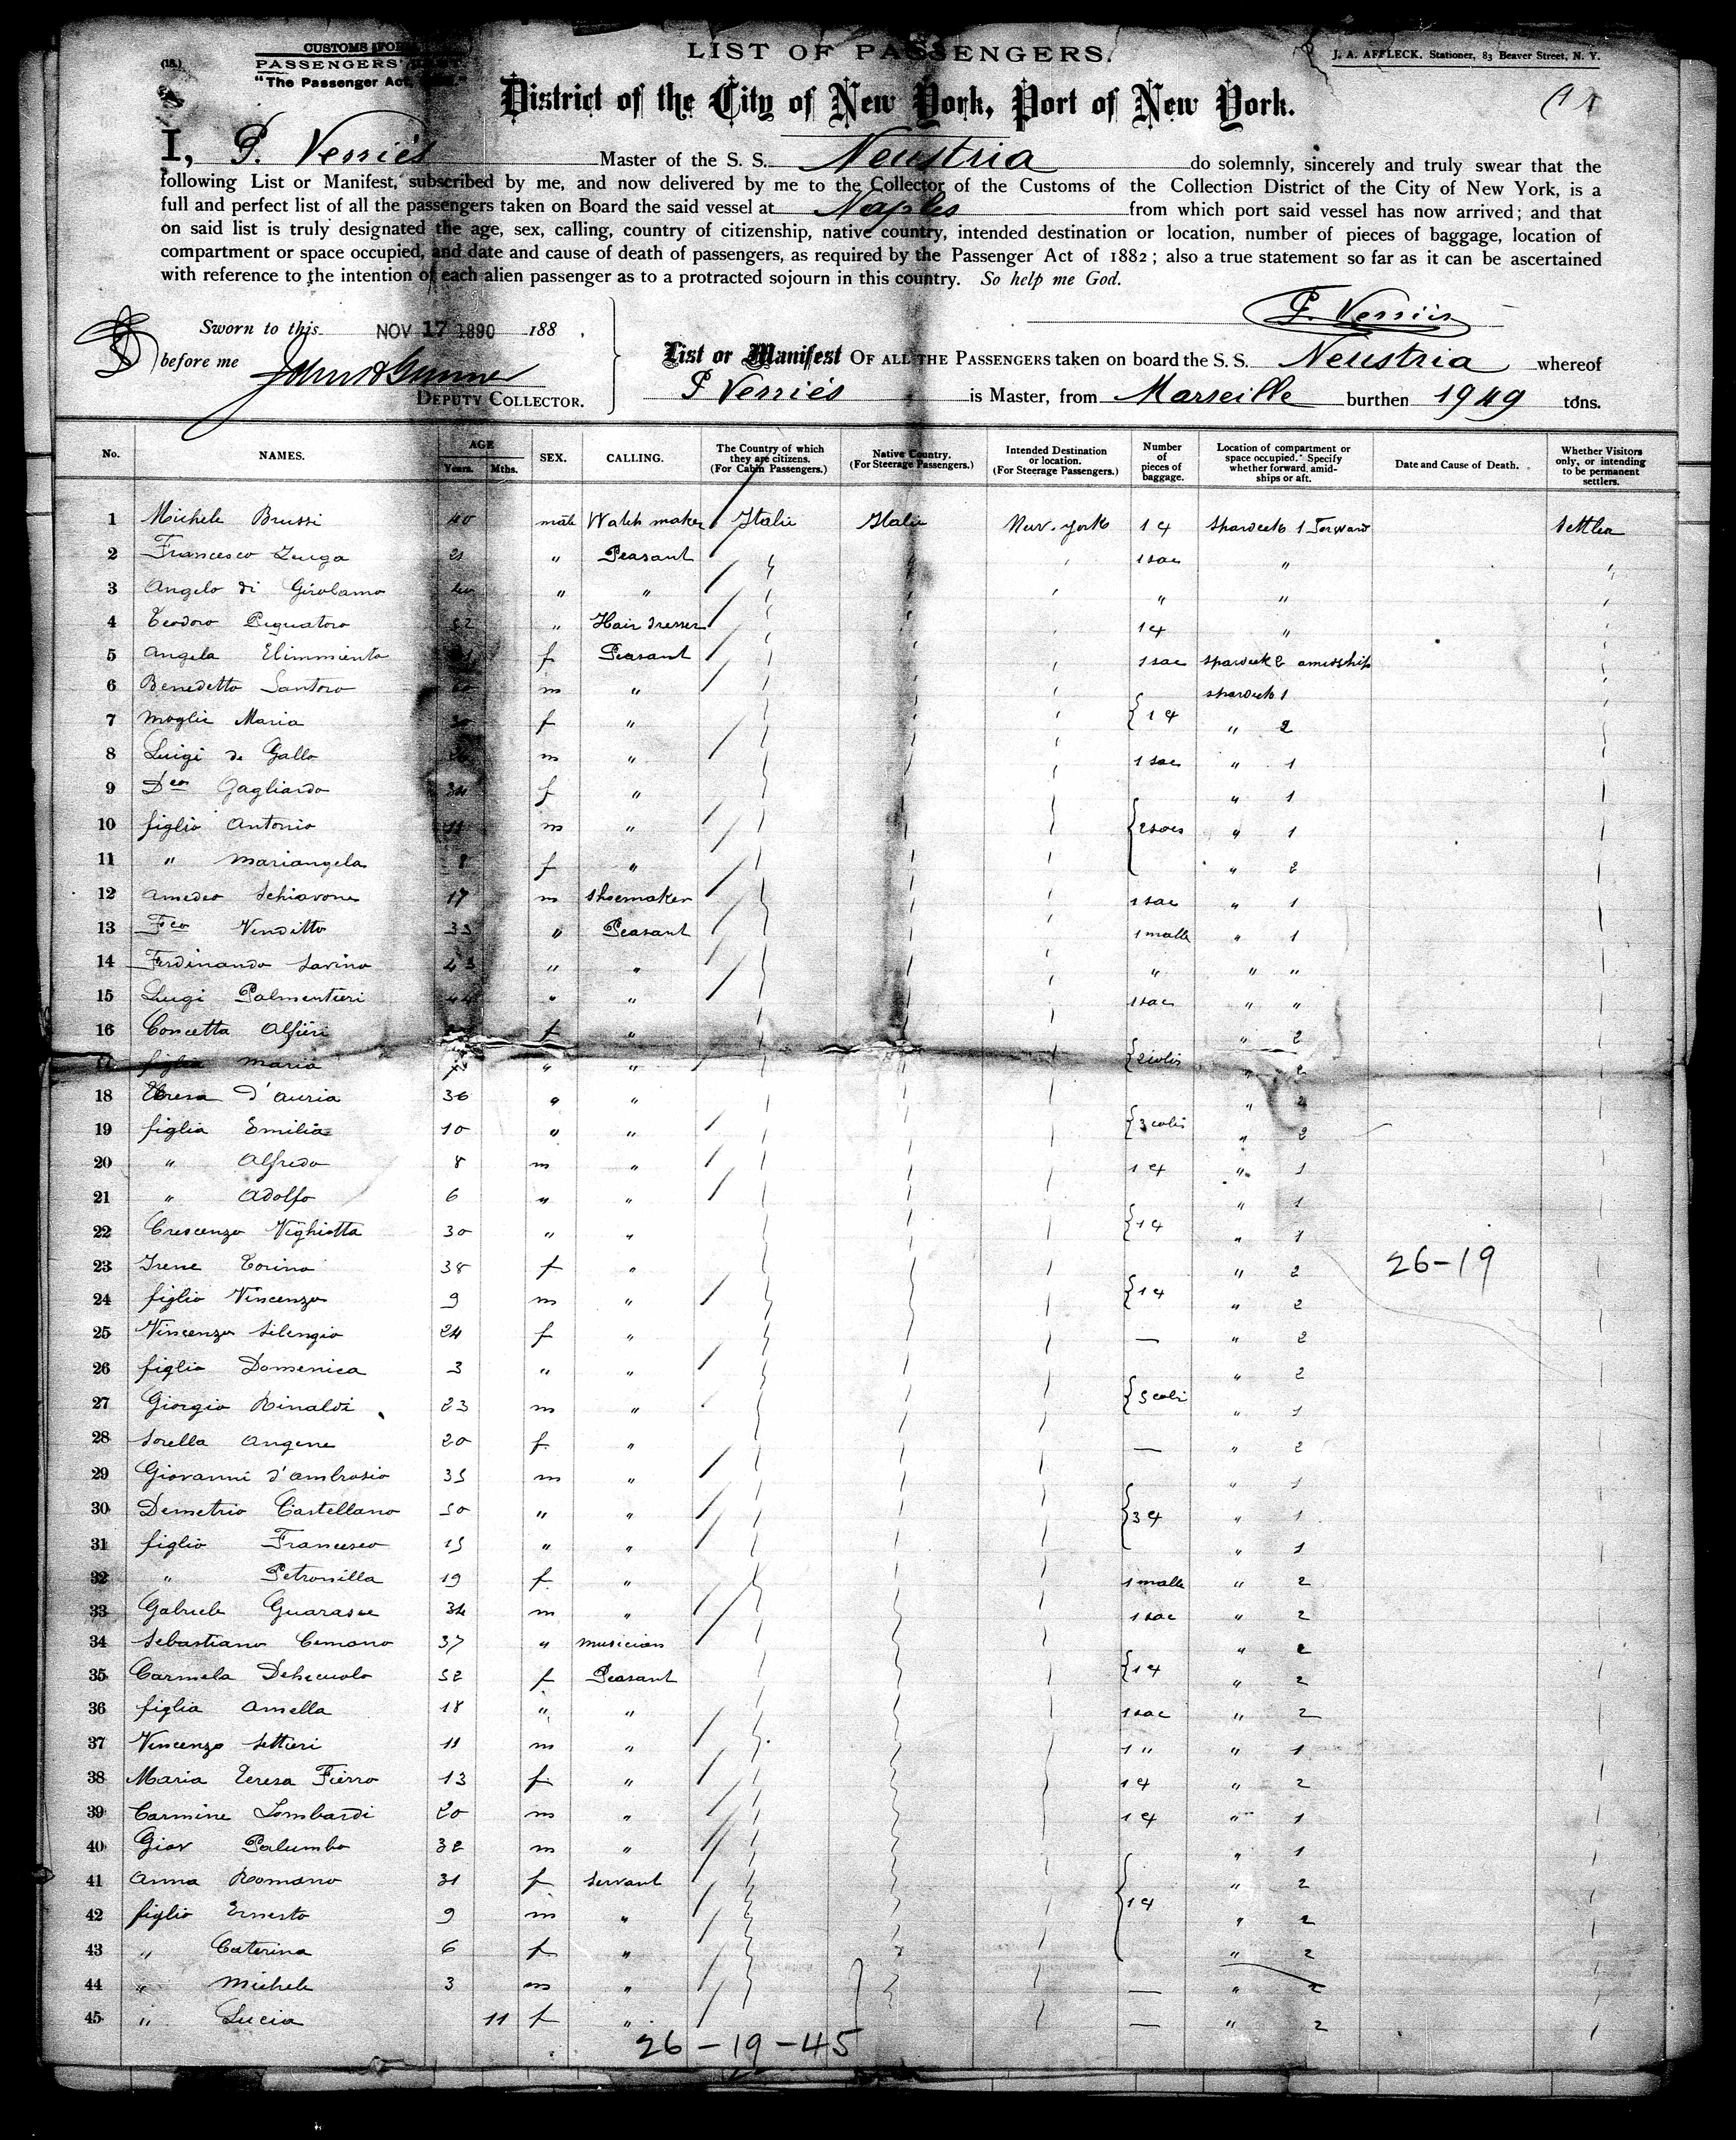 (18.)
CUSTOMS FOR
PASSENGERS'
"The Passenger Act,
LIST OF PASSENGERS.
J. A. AFFLECK. Stationer, 83 Beaver Street, N. Y.
District of the City of New York, Port of New York.
I, P. Verriés Master of the S. S. Neustria do solemnly, sincerely and truly swear that the
following List or Manifest, subscribed by me, and now delivered by me to the Collector of the Customs of the Collection District of the City of New York, is a
full and perfect list of all the passengers taken on Board the said vessel at Naples from which port said vessel has now arrived; and that
on said list is truly designated the age, sex, calling, country of citizenship, native country, intended destination or location, number of pieces of baggage, location of
compartment or space occupied, and date and cause of death of passengers, as required by the Passenger Act of 1882; also a true statement so far as it can be ascertained
with reference to the intention of each alien passenger as to a protracted sojourn in this country. So help me God.
P. Verriés
Sworn to this NOV 17 1890 188 .
before me
DEPUTY COLLECTOR.
List or Manifest OF ALL THE PASSENGERS taken on board the S. S. Neustria whereof
P Verriés is Master, from Marseille burthen 1949 tons.
No. NAMES. AGE Years. Mths. SEX. CALLING. The Country of which they are citizens. (For Cabin Passengers.) Native Country. (For Steerage Passengers.) Intended Destination or location. (For Steerage Passengers.) Number of pieces of baggage. Location of compartment or space occupied. Specify whether forward, amidships or aft. Date and Cause of Death. Whether Visitors only, or intending to be permanent settlers.
1 Michele Brussi 40 male Watch maker Italie Italie New-york 1 4 Spardeck 1 Forward Settler
2 Francesco Zurga 21 " Peasant 1 sac "
3 Angelo di Girolamo 40 " " " "
4 Teodoro Pignatoro 52 " Hair dresser 1 4 "
5 Angela f Peasant 1 sac spardeck 2 amidship
6 Benedetto Santoro m " spardeck 1
7 moglie Maria 30 f " 1 4 " 2
8 Luigi de Gallo m " 1 sac " 1
9 Dco Gagliardo 34 f " " 1
10 figlio Antonio 11 m " 2 sacs " 1
11 " Mariangela 8 f " " 2
12 Amedeo Schiavone 17 m shoemaker 1 sac " 1
13 Fco Venditto 33 " Peasant 1 malle " 1
14 Ferdinando Savino 43 " " " " "
15 Luigi Palmentieri 44 " " 1 sac " "
16 Concetta Alfieri f " " 2
17 figlia Maria " " 2 colis " 2
18 Teresa d'Auria 36 " " " 2
19 figlia Emilia 10 " " 3 colis " 2
20 " Alfredo 8 m " 1 4 " 1
21 " Adolfo 6 " " " 1
22 Crescenzo Vighiotta 30 " " 1 4 " 1
23 Irene Torino 38 f " " 2
24 figlio Vincenzo 9 m " 1 4 " 2
25 Vincenzo Silengio 24 f " — " 2
26 figlia Domenica 3 " " " 2
27 Giorgio Rinaldi 23 m " 3 colis " 1
28 Sorella Angene 20 f " — " 2
29 Giovanni d'Ambrosio 35 m " " 1
30 Demetrio Castellano 50 " " 3 4 " 1
31 figlio Francesco 15 " " " 1
32 " Petronilla 19 f " 1 malle " 2
33 Gabriele Guarasce 34 m " 1 sac " 2
34 Sebastiano Cemano 37 " musician " 2
35 Carmela 52 f Peasant 1 4 " 2
36 figlia Amella 18 " " 1 sac " 2
37 Vincenzo Settieri 11 m " 1 " " 1
38 Maria Teresa Fierro 13 f " 1 4 " 2
39 Carmine Lombardi 20 m " 1 4 " 1
40 Giov Palumbo 32 m " " 1
41 Anna Romano 31 f servant " 2
42 figlio Ernesto 9 m " 1 4 " 2
43 " Caterina 6 f " " 2
44 " Michele 3 m " — " 2
45 " Lucia 11 f " — " 2
26-19
26-19-45